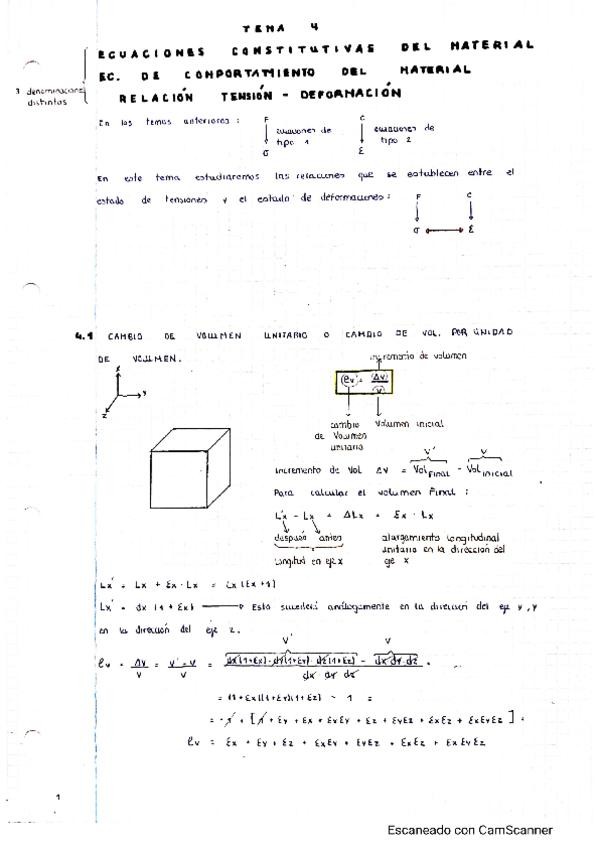 TEMA 4
ECUACIONES CONSTITUTIVAS DEL MATERIAL
EC. DE COMPORTAMIENTO DEL MATERIAL
RELACIÓN TENSIÓN - DEFORMACIÓN
3 denominaciones
distintas
En los temas anteriores :
F
ecuaciones de
tipo 1
σ
C
ecuaciones de
tipo 2
ε
En este tema estudiaremos las relaciones que se establecen entre el
estado de tensiones y el estado de deformaciones :
F C
σ ε
4.1 CAMBIO DE VOLUMEN UNITARIO O CAMBIO DE VOL. POR UNIDAD
DE VOLUMEN.
incremento de volumen
ev = ΔV / V
cambio
de Volumen
unitario
Volumen inicial
x
y
z
V' V
incremento de Vol ev = Vol Final - Vol inicial
Para calcular el volumen Final :
Lx' - Lx = ΔLx = εx · Lx
después antes
Longitud en eje x
alargamiento longitudinal
unitario en la dirección del
eje x
Lx' = Lx + εx · Lx = Lx (εx + 1)
Lx' = dx (1 + εx) → Esto sucederá análogamente en la dirección del eje y, y
en la dirección del eje z.
V' V
ev = ΔV / V = V' - V / V = dx(1+εx) · dy(1+εy) · dz(1+εz) - dx dy dz / dx dy dz =
= (1+εx)(1+εy)(1+εz) - 1 =
= -1 + [1 + εy + εx + εxεy + εz + εyεz + εxεz + εxεyεz] =
ev = εx + εy + εz + εxεy + εyεz + εxεz + εxεyεz
1
Escaneado con CamScanner